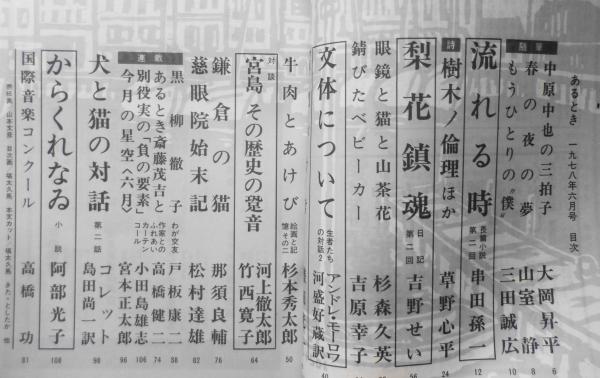 あるとき 一九七八年六月号 目次
随筆
中原中也の三拍子 大岡昇平 6
春の夜の夢 山室静 8
もうひとりの“僕” 三田誠広 10
流れる時 長篇小説 第二回 串田孫一 12
詩
樹木ノ倫理ほか 草野心平 24
梨花鎮魂 日記 第二回 吉野せい 56
眼鏡と猫と山茶花 杉森久英
錆びたベビーカー 吉原幸子
文体について 生者たちの対話2 アンドレ・モーロワ 河盛好蔵訳 40
牛肉とあけび 絵画と記憶その二 杉本秀太郎 50
対談
宮島 その歴史の跫音 河上徹太郎 竹西寛子 64
鎌倉の猫 那須良輔 76
慈眼院始末記 松村達雄 82
連載
黒柳徹子 わが交友 戸板康二 38
あるとき斎藤茂吉と 作家とのふれあい 高橋健二 74
別役実の「負の要素」 カーテンコール 小田島雄志 106
今月の星空〈六月〉 宮本正太郎 96
犬と猫の対話 第二話 コレット 島田尚一訳 98
からくれなゐ 小説 阿部光子 108
国際音楽コンクール 高橋功 81
表紙画 山本文彦 目次画 堀太久馬 本文カット・堀太久馬 きた・としたか 他